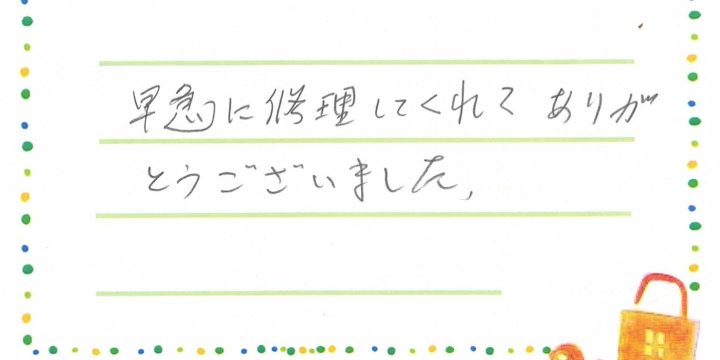 早急に修理してくれて ありが
とうございました,